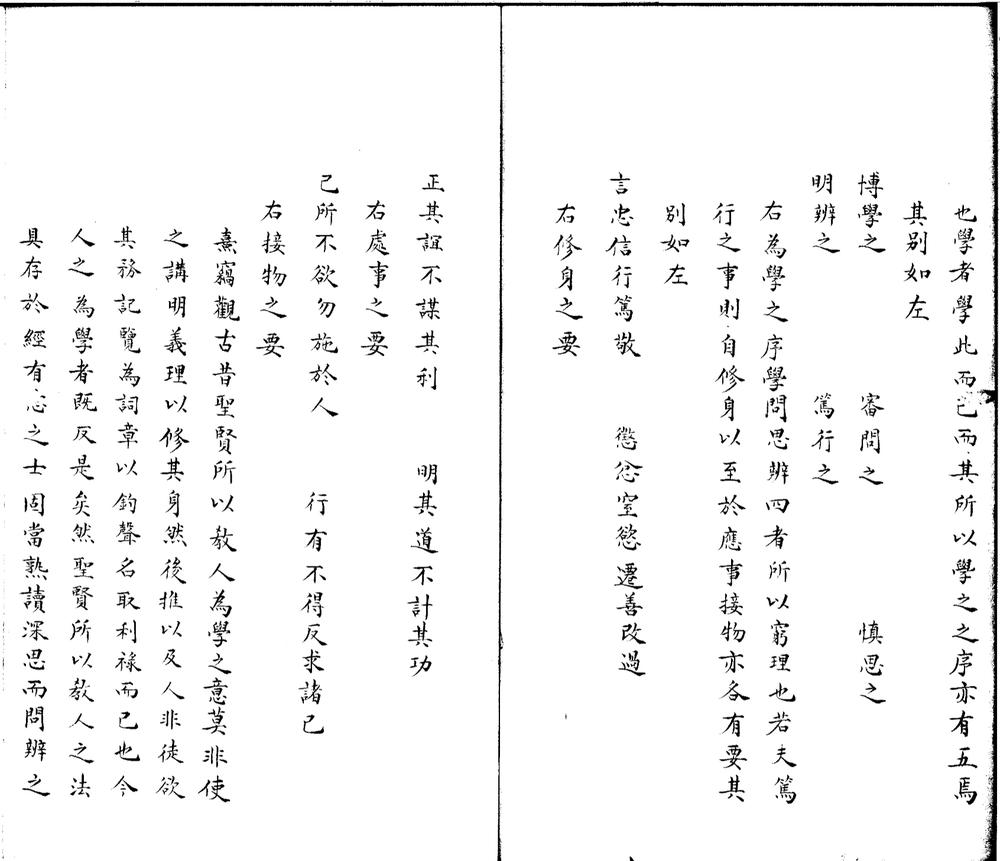 也學者學此而已而其所以學之之序亦有五焉
其别如左
博學之 審問之 慎思之
明辨之 篤行之
右為學之序學問思辨四者所以窮理也若夫篤
行之事則自修身以至於應事接物亦各有要其
别如左
言忠信行篤敬 懲忿窒慾遷善改過
右修身之要
正其誼不謀其利 明其道不計其功
右處事之要
己所不欲勿施於人 行有不得反求諸己
右接物之要
熹竊觀古昔聖賢所以教人為學之意莫非使
之講明義理以修其身然後推以及人非徒欲
其務記覽為詞章以釣聲名取利祿而已也今
人之為學者既反是矣然聖賢所以教人之法
具存於經有志之士固當熟讀深思而問辨之